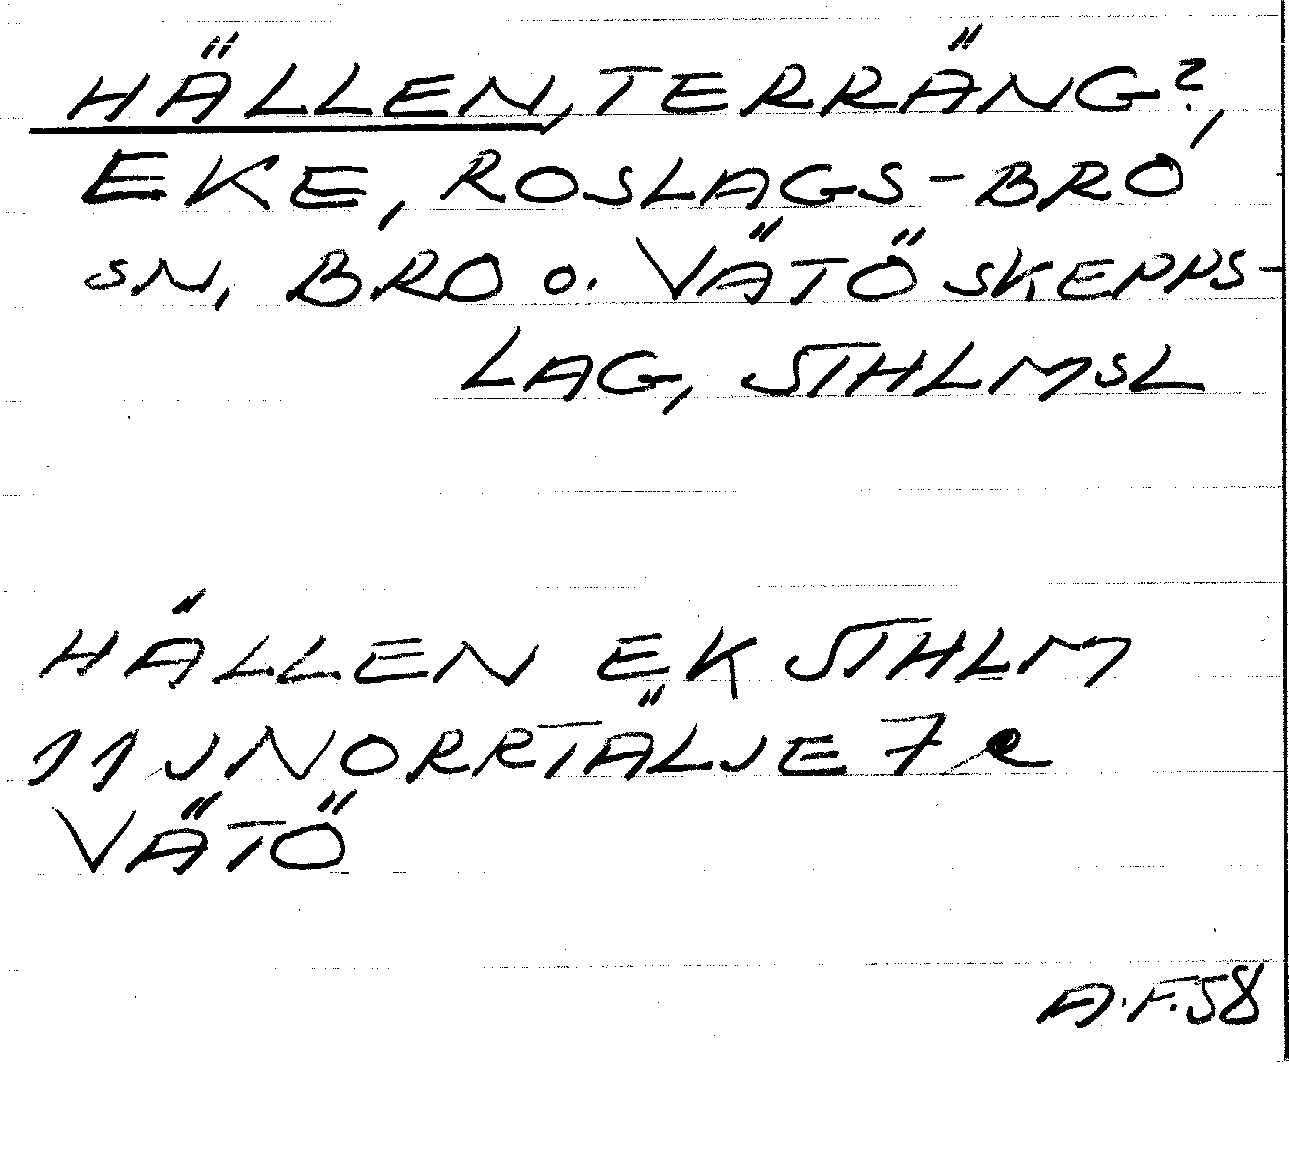 HÄLLEN, TERRÄNG?,
EKE, ROSLAGS-BRO
SN, BRO O. VÄTÖ SKEPPS-
LAG, STHLMSL
HÄLLEN EK STHLM
11J NORRTÄLJE 7e
VÄTÖ
A.F.58